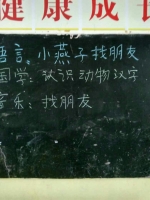 健康成长
语言：小燕子找朋友
国学：认识动物汉字
音乐：找朋友